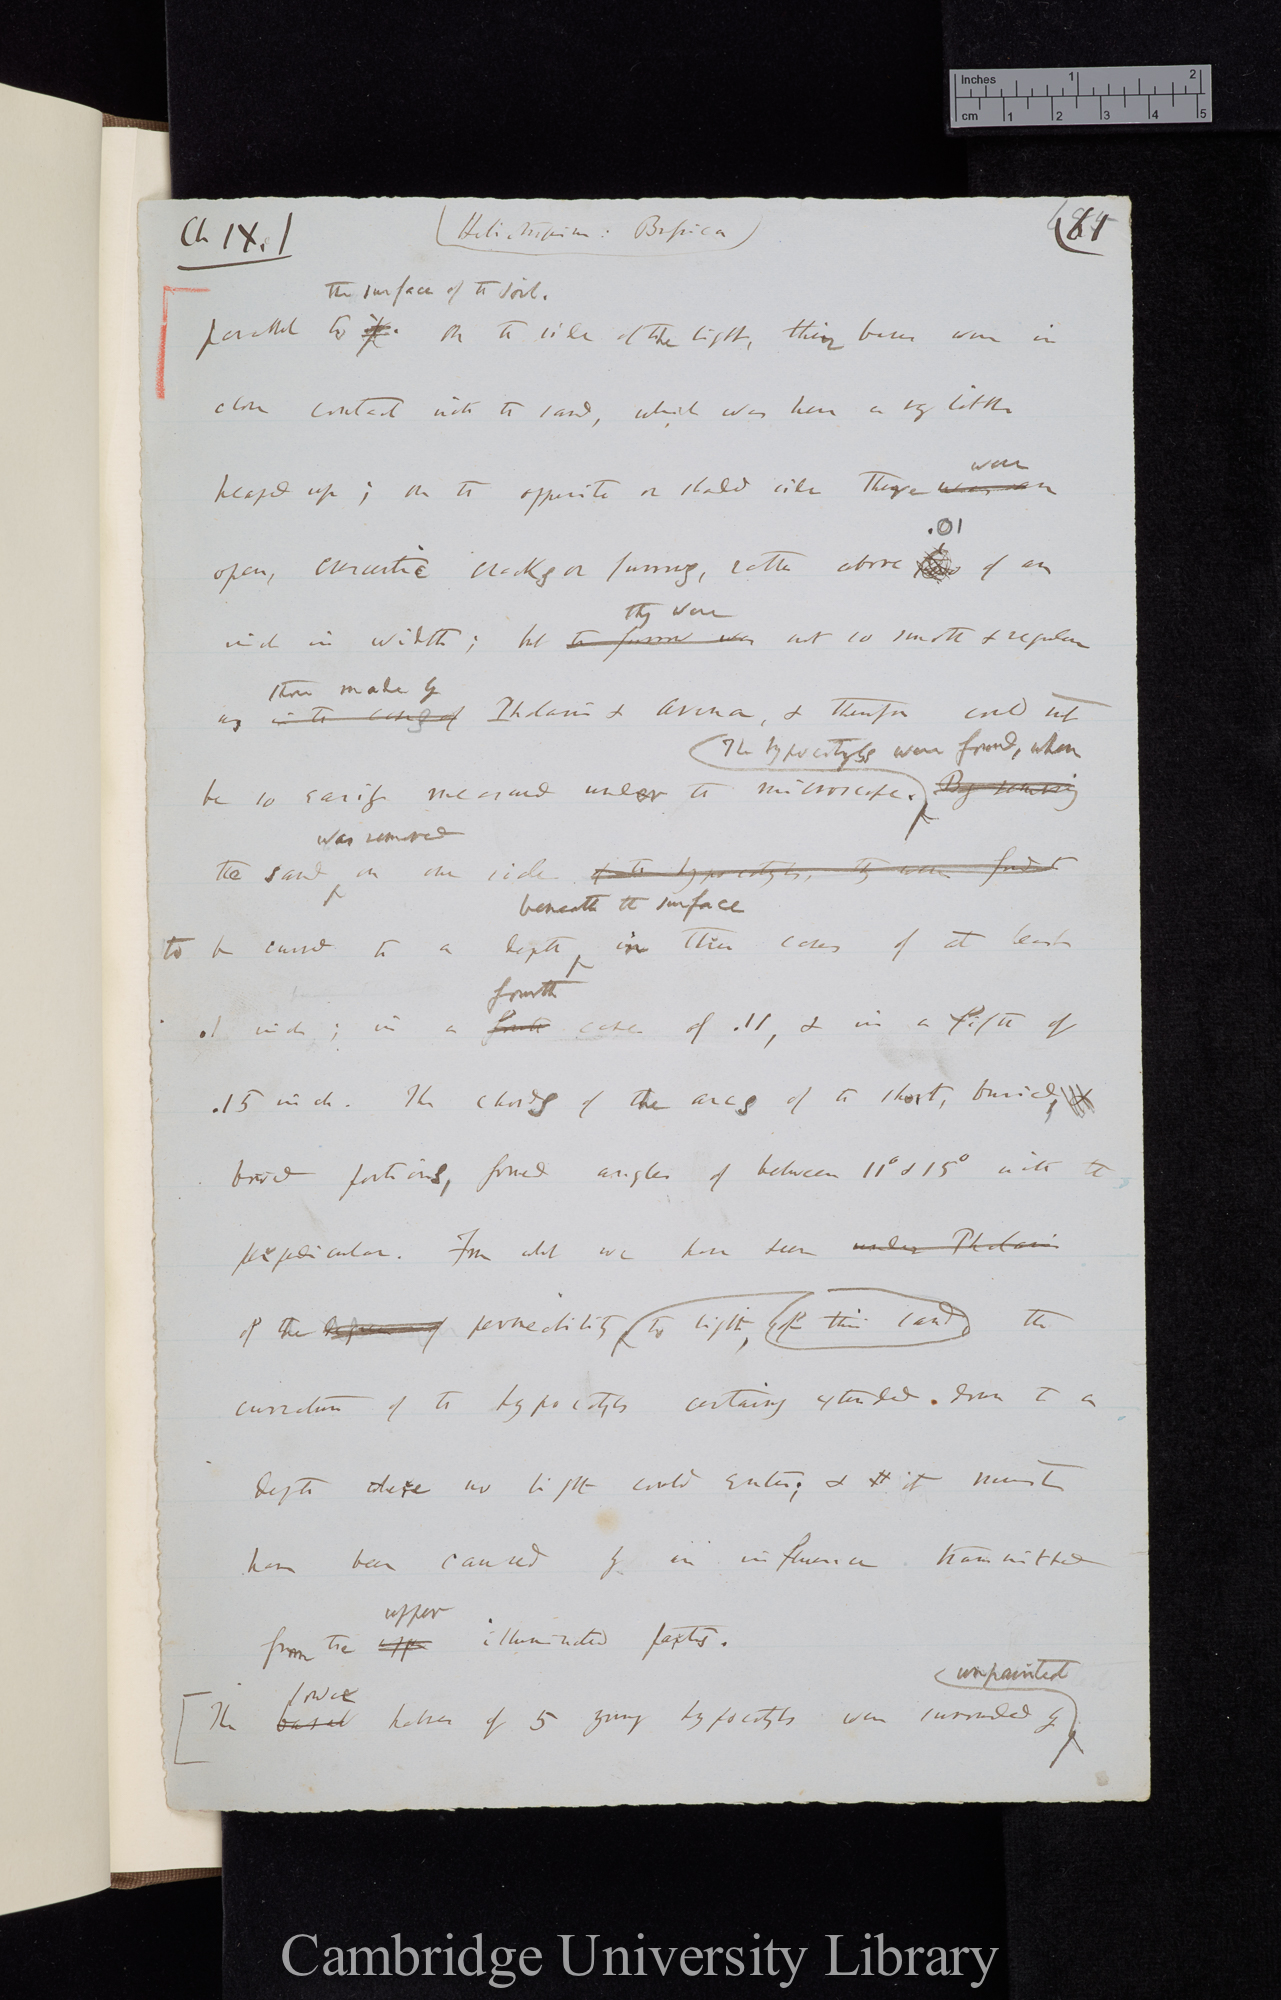 Inches 1 2
cm 1 2 3 4 5
Ch IX.
(Heliotropism: Brassica)
the surface of the soil.
parallel to it. On the side of the light, their bases were in
close contact with the sand, which was here a very little
were
heaped up; on the opposite or shaded side there
.01
open, crescentic cracks or furrows, rather above of an
they were
inch in width; but the furrow was not so smooth & regular
those made by
as in the case of Phalaris & Avena, & therefore could not
The hypocotyls were found, when
be so easily measured under the microscope. By removing
was removed
the sand on one side of the hypocotyls, they were found
beneath the surface
to be curved to a depth in three cases of at least
fourth
.1 inch; in a fourth case of .11, & in a fifth of
.15 inch. The chords of the arcs of the short, buried,
bowed portions, formed angles of between 11° & 15° with the
perpendicular. From what we have seen under Phalaris
of the permeability to light, of this sand, the
curvature of the hypocotyls certainly extended down to a
depth where no light could enter; & it must
have been caused by an influence transmitted
upper
from the upper illuminated parts.
unpainted
lower
The basal halves of 5 young hypocotyls were surrounded by
Cambridge University Library